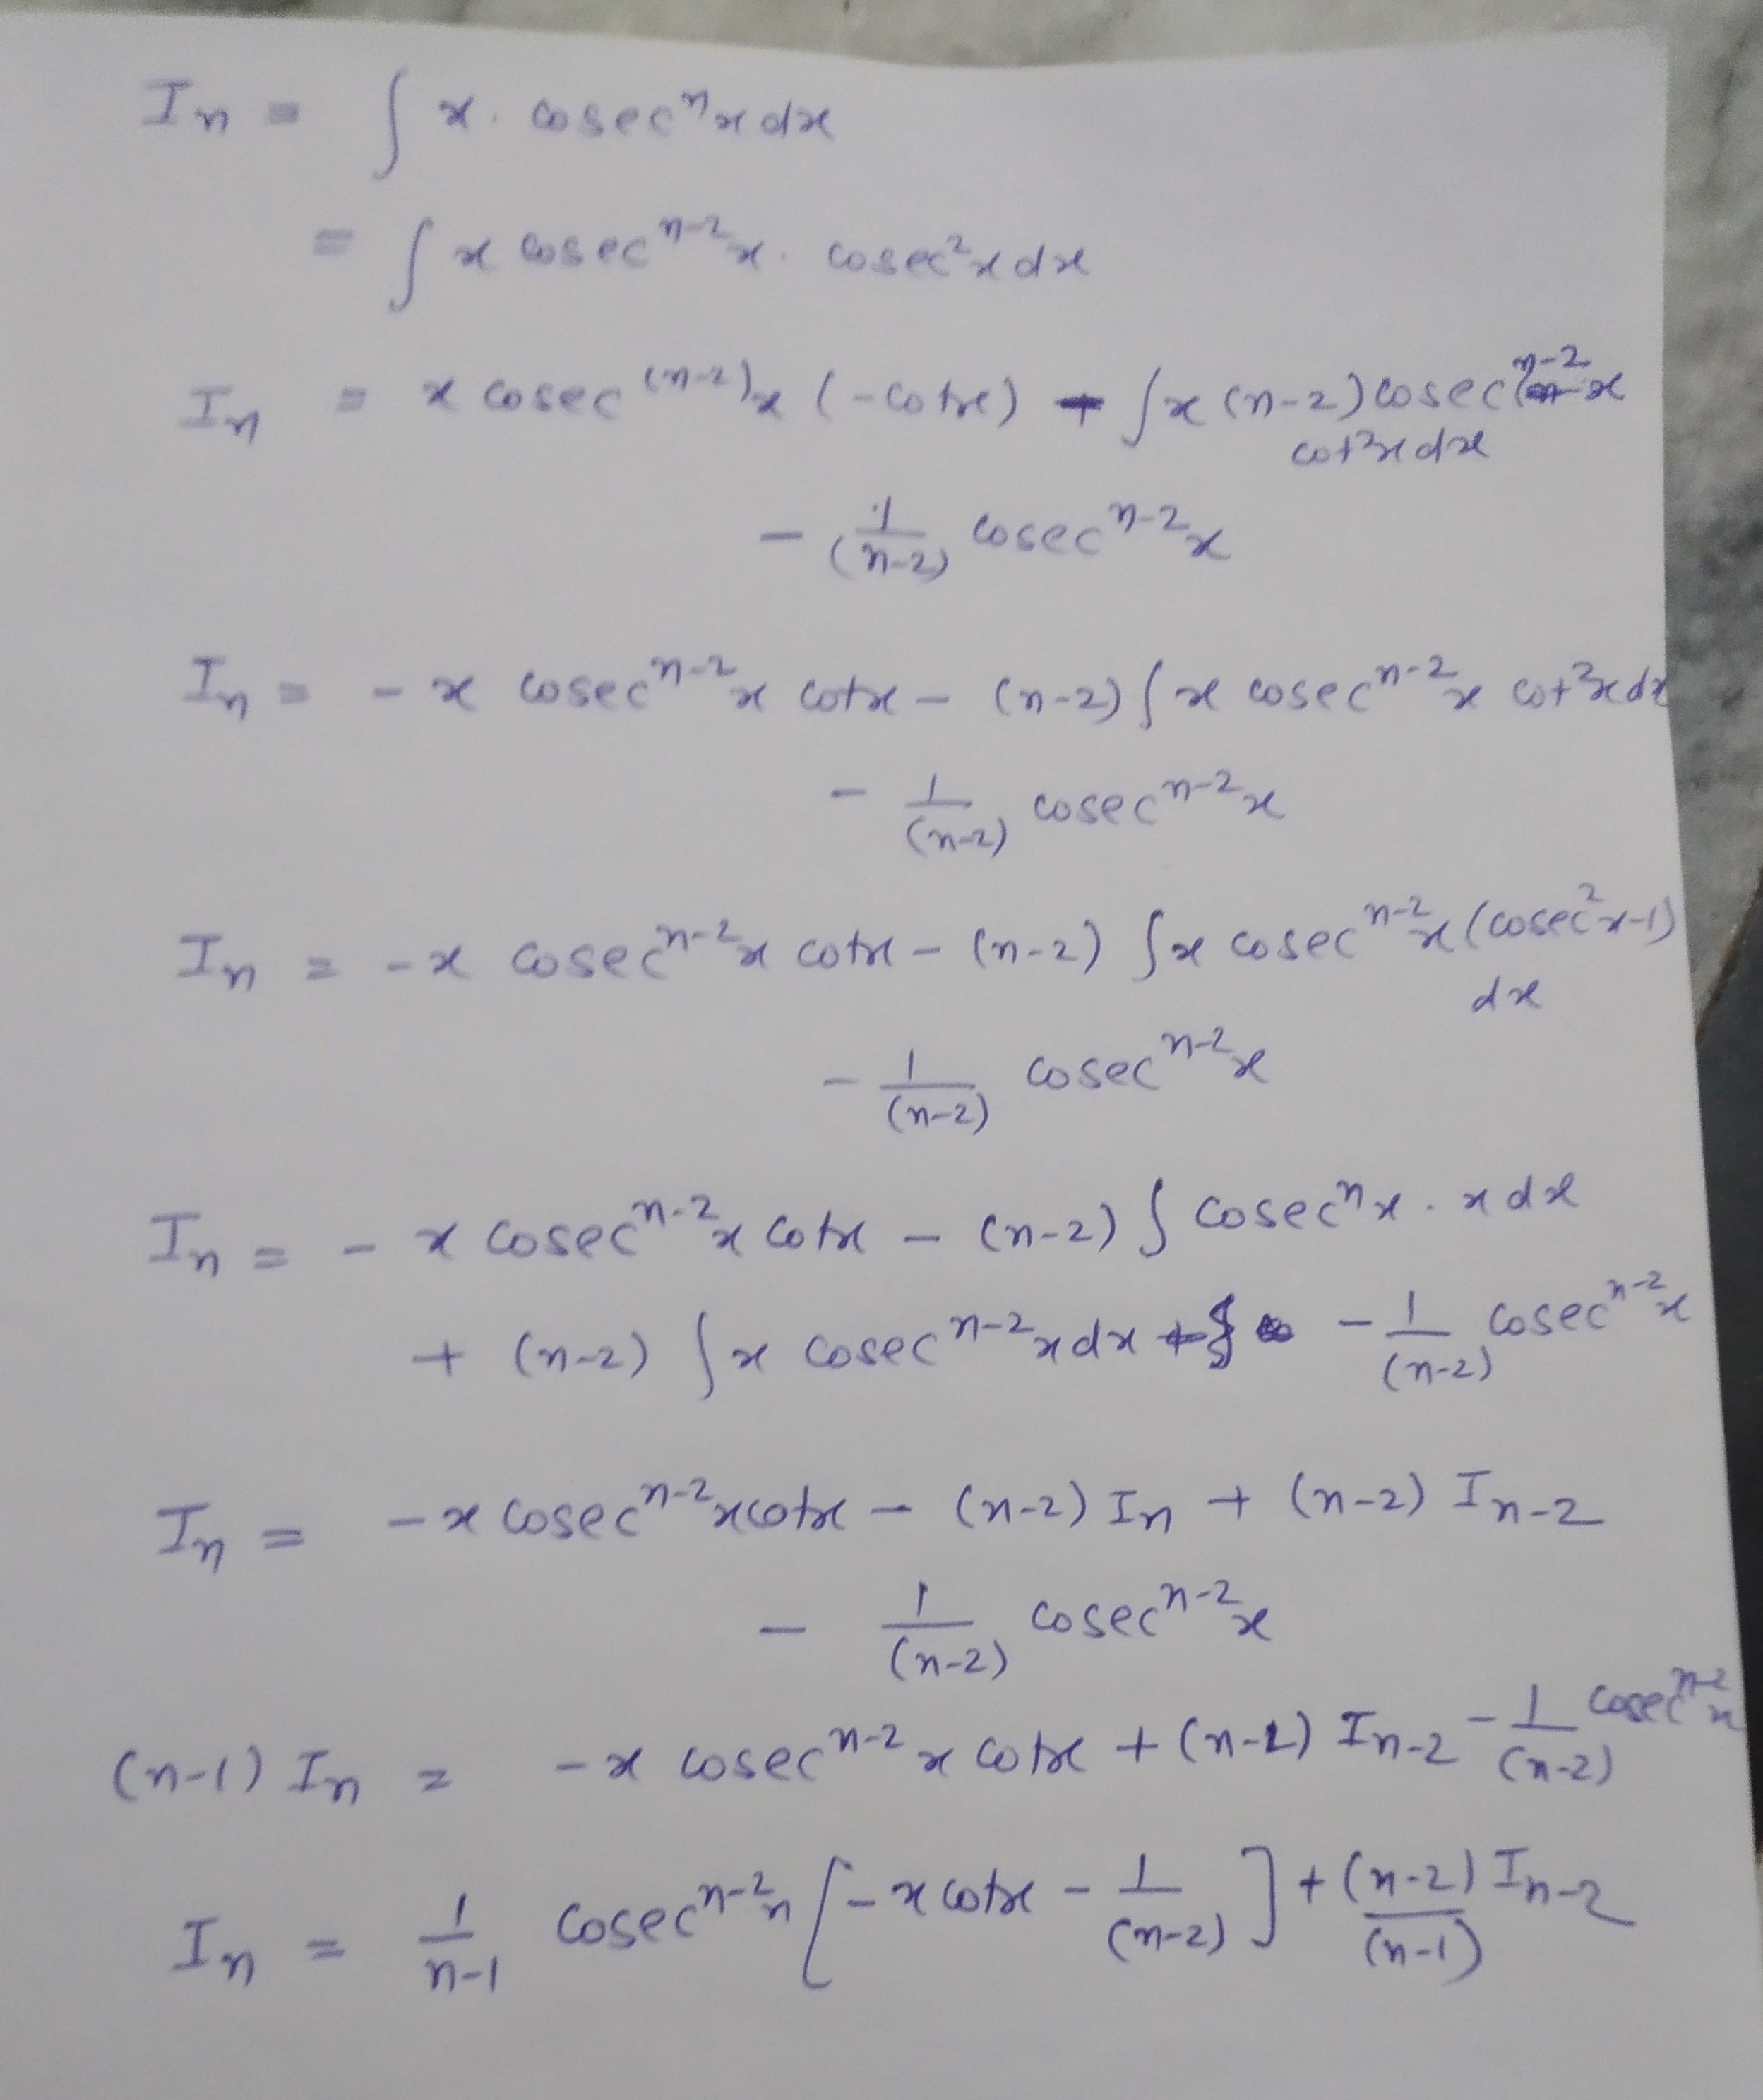 I_n = ∫ x. cosec^n x dx
= ∫ x cosec^{n-2} x. cosec^2 x dx
I_n = x cosec^{(n-2)} x (-cotx) - ∫ x (n-2) cosec^{n-2} x
cot^2 x dx
- 1/(n-2) cosec^{n-2} x
I_n = - x cosec^{n-2} x cotx - (n-2) ∫ x cosec^{n-2} x cot^2 x dx
- 1/(n-2) cosec^{n-2} x
I_n = - x cosec^{n-2} x cotx - (n-2) ∫ x cosec^{n-2} x (cosec^2 x-1)
dx
- 1/(n-2) cosec^{n-2} x
I_n = - x cosec^{n-2} x cotx - (n-2) ∫ cosec^n x . x dx
+ (n-2) ∫ x cosec^{n-2} x dx - 1/(n-2) cosec^{n-2} x
I_n = - x cosec^{n-2} x cotx - (n-2) I_n + (n-2) I_{n-2}
- 1/(n-2) cosec^{n-2} x
(n-1) I_n = - x cosec^{n-2} x cotx + (n-2) I_{n-2} - 1/(n-2) cosec^{n-2} x
I_n = 1/n-1 cosec^{n-2} x [- x cotx - 1/(n-2)] + (n-2)/(n-1) I_{n-2}